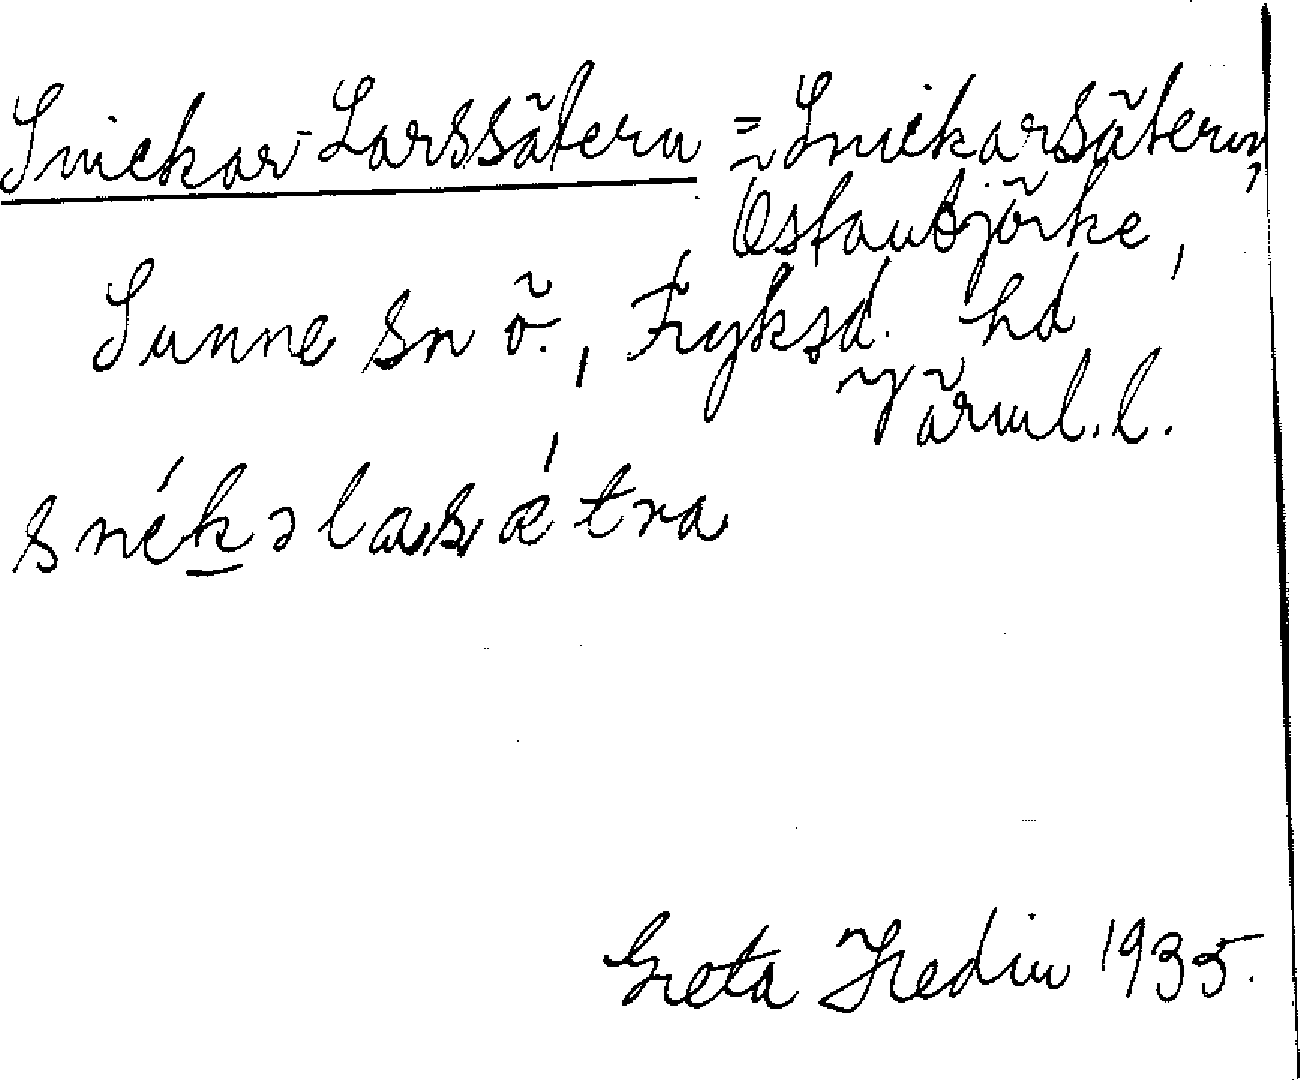 Snickar-Larssätern = Snickarsätern,
Östanbjörke,
Sunne sn ö., Fryksd. hd
Värml. l.
snék̲əlasǽtra
Greta Hedin 1935.